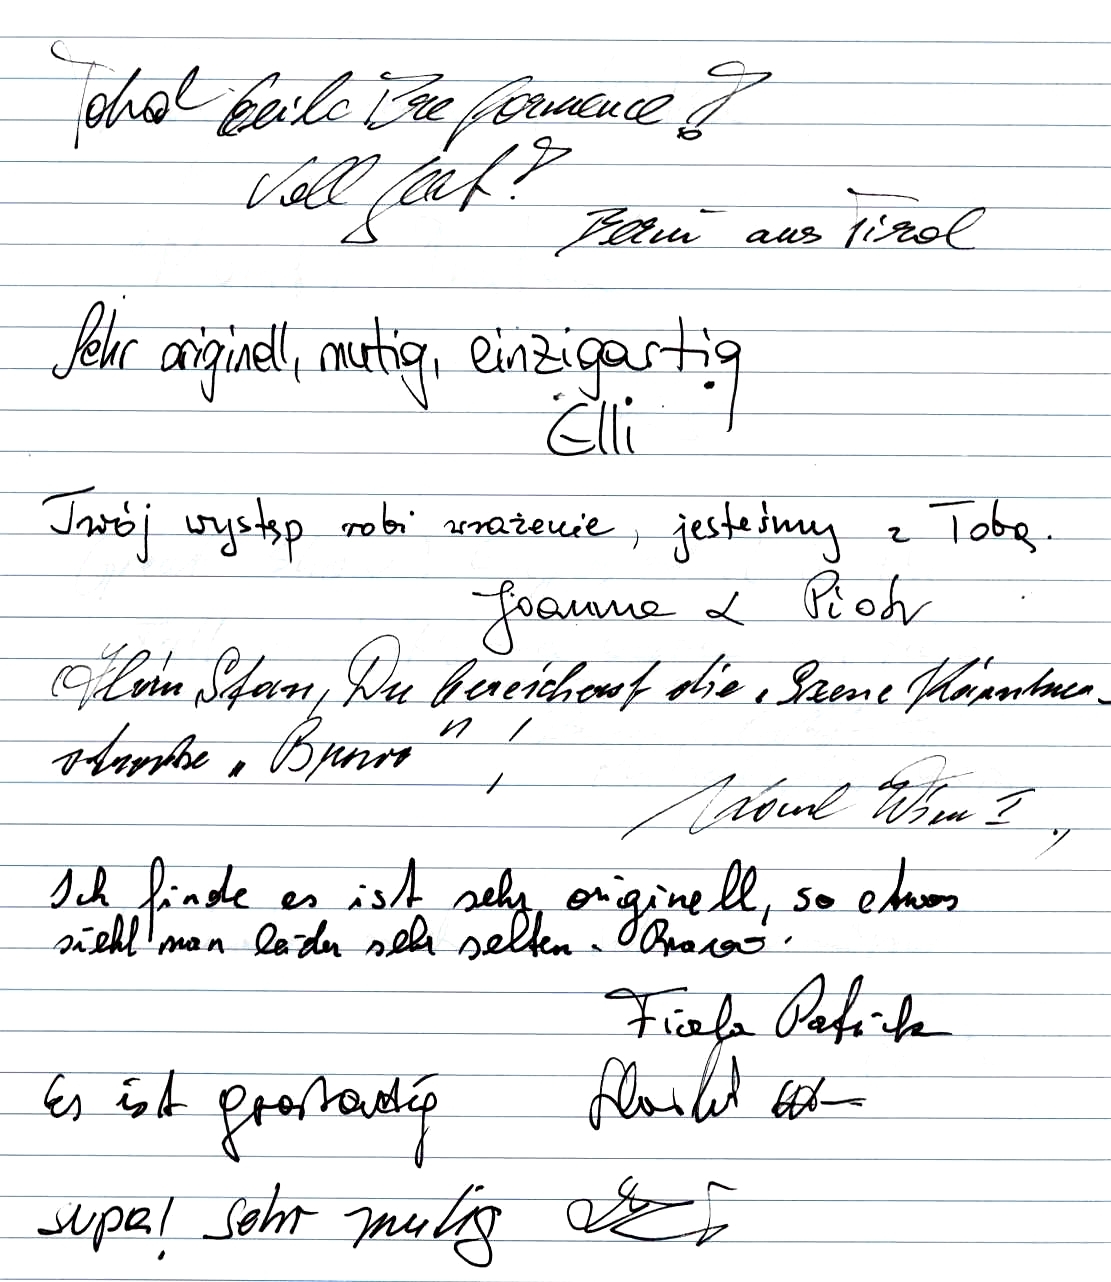 Total geile Performence!
Voll gut!
Berni aus Tirol
Sehr originell, mutig, einzigartig
Elli
Twój występ robi wrażenie, jesteśmy z Tobą.
Joanna & Piotr
Stan, Du bereicherst die "Szene Kärntner-
strasse" Bravo" !
Karl Wien I
Ich finde es ist sehr originell, so etwas
sieht man leider sehr selten. Bravo.
Patrick
Es ist grosartig
super! sehr mutig